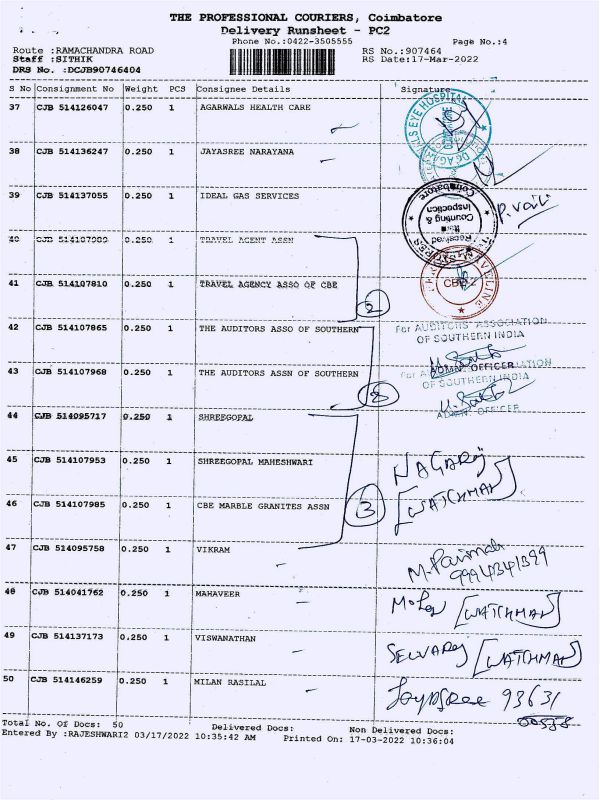 THE PROFESSIONAL COURIERS, Coimbatore
Delivery Runsheet - PC2
Phone No.:0422-3505555 Page No.:4
Route :RAMACHANDRA ROAD RS No.:907464
Staff :SITHIK RS Date:17-Mar-2022
DRS No. :DCJB90746404
S No Consignment No Weight PCS Consignee Details Signature
37 CJB 514126047 0.250 1 AGARWALS HEALTH CARE
38 CJB 514136247 0.250 1 JAYASREE NARAYANA
39 CJB 514137055 0.250 1 IDEAL GAS SERVICES
Coimbatore
Counting & Inspection
Received
40 CJB 514107909 0.250 1 TRAVEL AGENT ASSN
41 CJB 514107810 0.250 1 TRAVEL AGENCY ASSO OF CBE
CBE 2
2
42 CJB 514107865 0.250 1 THE AUDITORS ASSO OF SOUTHERN
For AUDITORS' ASSOCIATION
OF SOUTHERN INDIA
ADMN. OFFICER
43 CJB 514107968 0.250 1 THE AUDITORS ASSN OF SOUTHERN
OF SOUTHERN INDIA
ADMN. OFFICER
44 CJB 514095717 0.250 1 SHREEGOPAL
45 CJB 514107953 0.250 1 SHREEGOPAL MAHESHWARI
NAGARAJ
[WATCHMAN]
46 CJB 514107985 0.250 1 CBE MARBLE GRANITES ASSN
3
47 CJB 514095758 0.250 1 VIKRAM
48 CJB 514041762 0.250 1 MAHAVEER [WATCHMAN]
49 CJB 514137173 0.250 1 VISWANATHAN SELVARAJ [WATCHMAN]
50 CJB 514146259 0.250 1 MILAN RASILAL 93631
Total No. Of Docs: 50 Delivered Docs: Non Delivered Docs:
Entered By :RAJESHWARI2 03/17/2022 10:35:42 AM Printed On: 17-03-2022 10:36:04